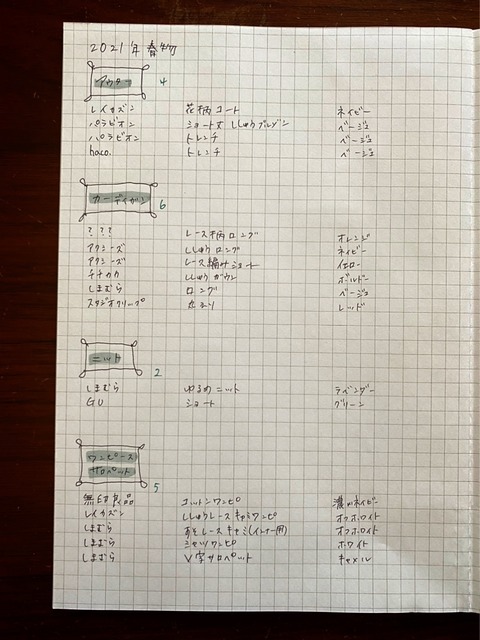 2021年 春物
アウター 4
レイカズン 花柄コート ネイビー
パラビオン ショート丈 ししゅうブルゾン ベージュ
パラビオン トレンチ ベージュ
haco. トレンチ ベージュ
カーディガン 6
??? レース柄ロング オレンジ
アクシーズ ししゅうロング ネイビー
アクシーズ レース編みショート イエロー
チチカカ ししゅうガウン ボルドー
しまむら ロング ベージュ
スタジオクリップ レッド
ニット 2
しまむら ゆるめニット ラベンダー
GU ショート グリーン
ワンピース
サロペット 5
無印良品 コットンワンピ 濃いネイビー
レイカズン ししゅうレースキャミワンピ オフホワイト
しまむら すそレースキャミ(インナー用) オフホワイト
しまむら シャツワンピ ホワイト
しまむら V字サロペット キャメル